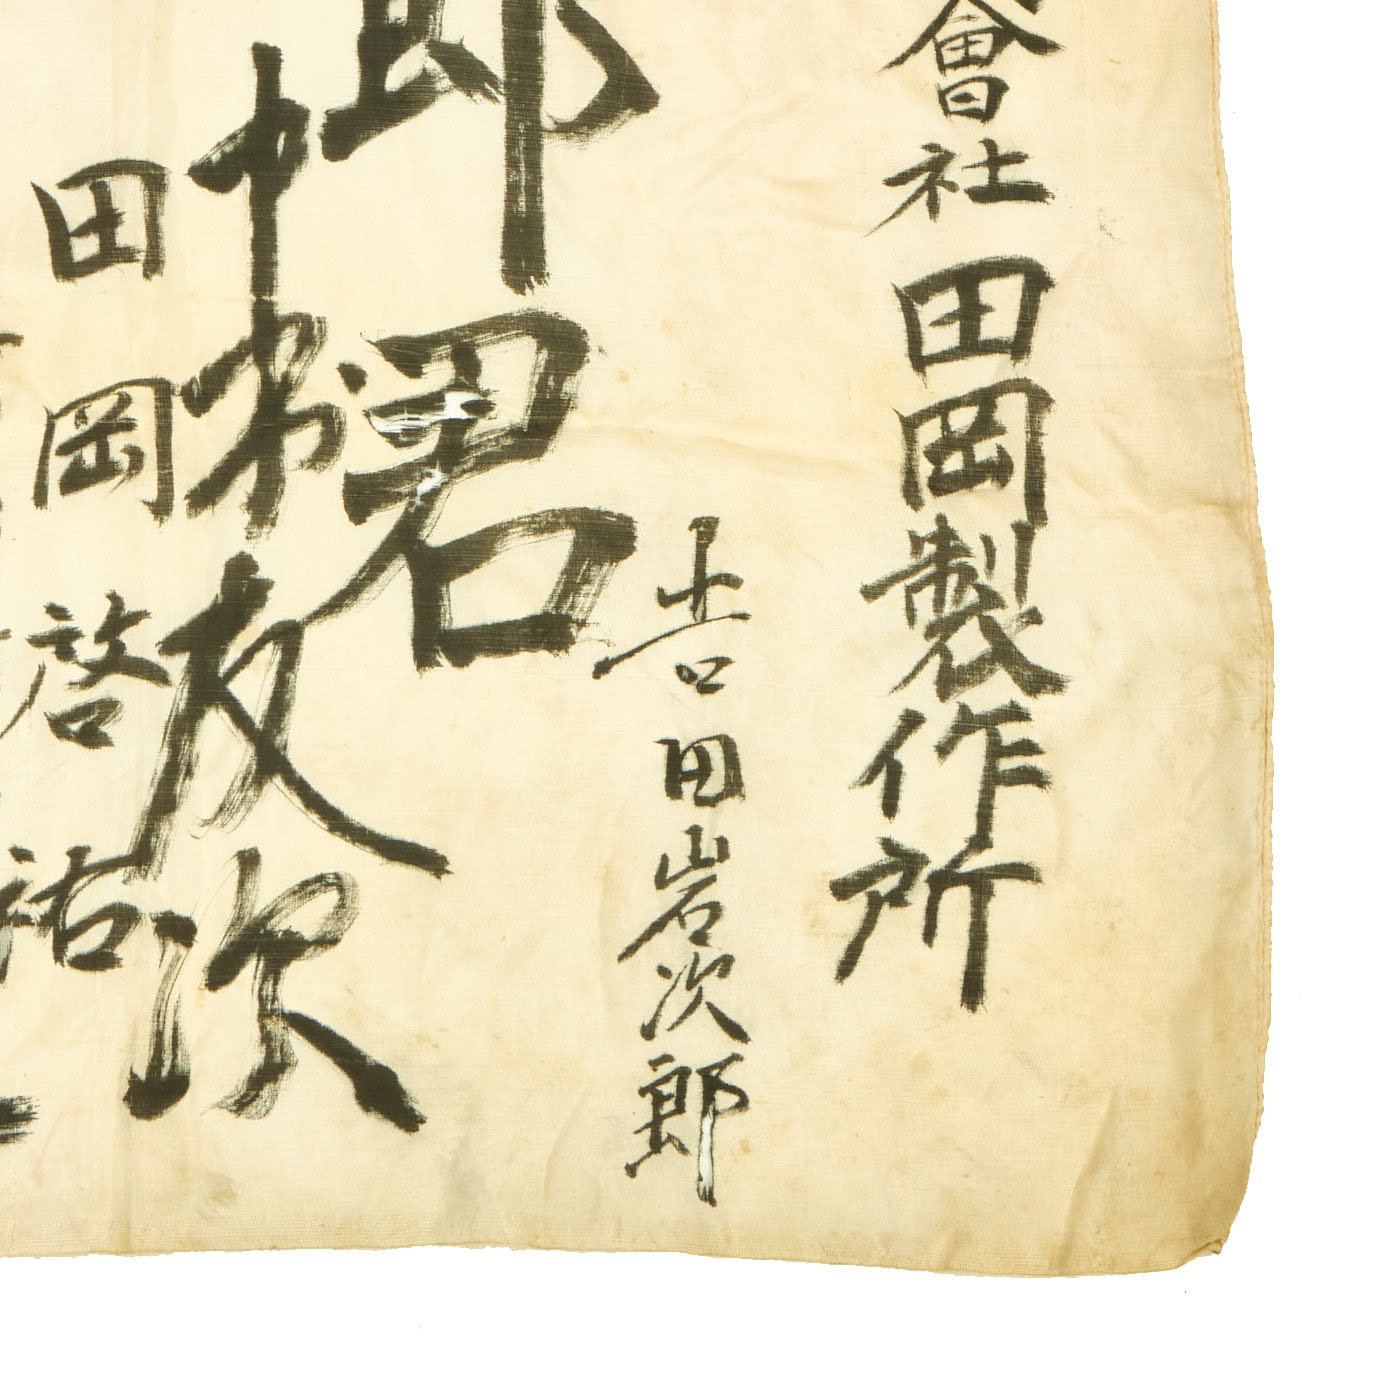 會社田岡製作所
吉田岩次郎
郎君
中村友次
田岡啓祐